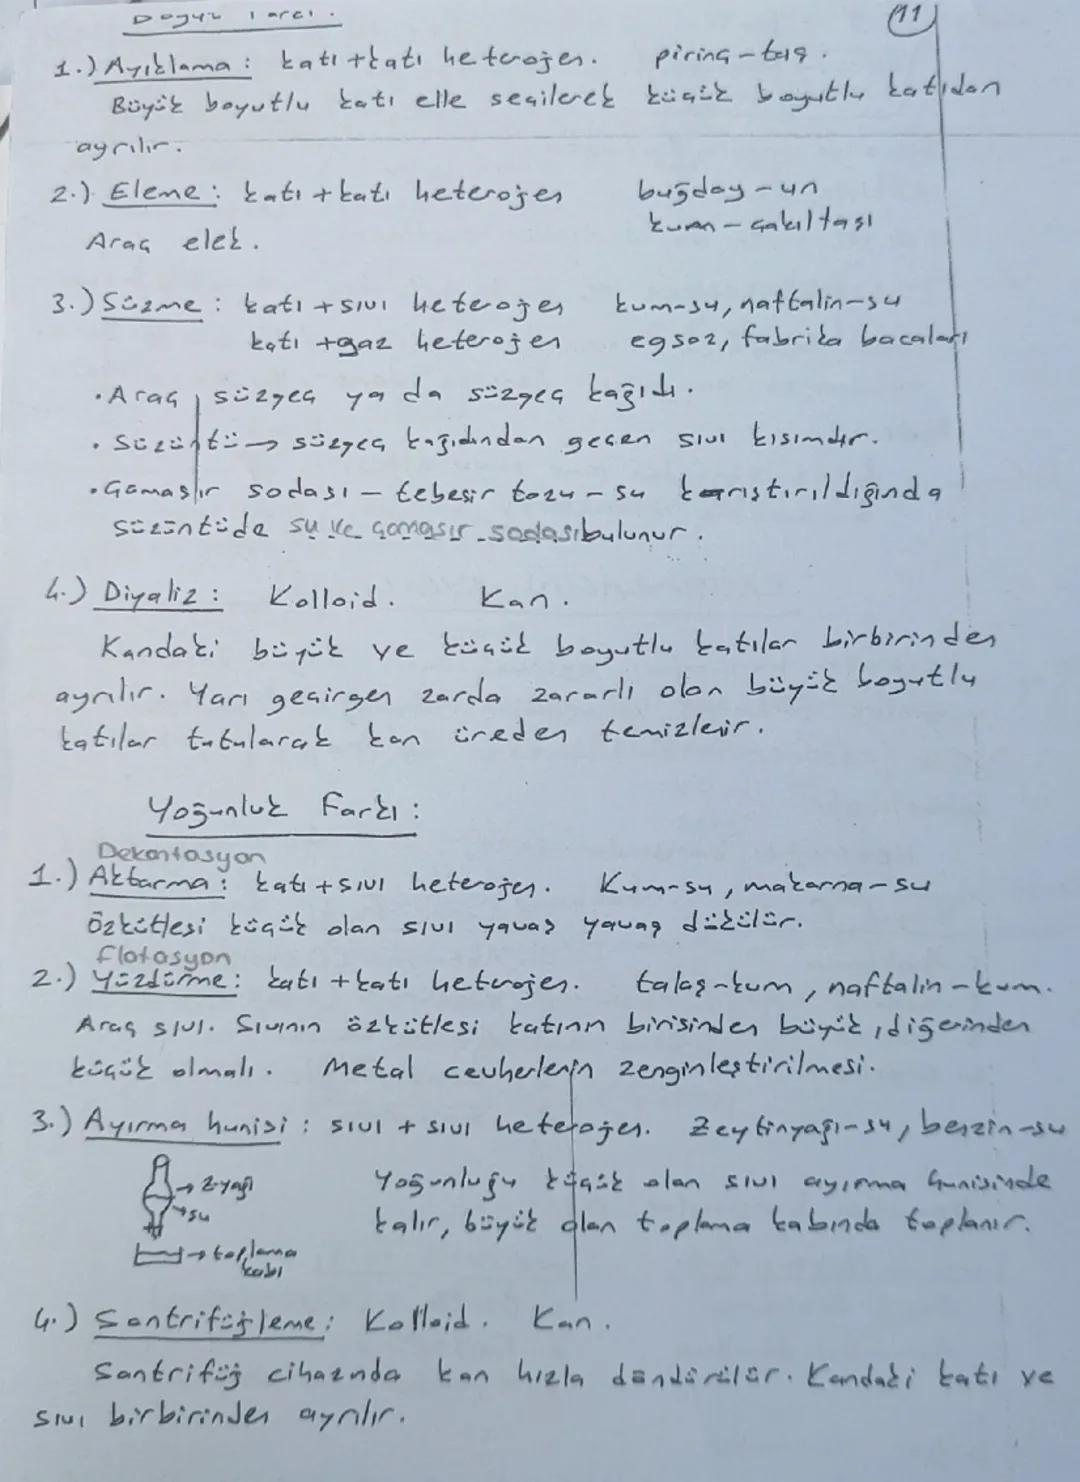 Boyut Farkı.
11
1.) Ayıklama: katı+katı heterojen. pirinç-taş.
Büyük boyutlu katı elle seçilerek küçük boyutlu katıdan
ayrılır.
2.) Eleme: katı+katı heterojen buğday-un
kum-çakıltaşı
Araç elek.
3.) Süzme: katı+sıvı heterojen kum-su, naftalin-su
katı+gaz heterojen egsoz, fabrika bacaları
• Araç, süzgeç ya da süzgeç kağıdı.
• Süzüntü → süzgeç kağıdından geçen sıvı kısımdır.
• Çamaşır sodası - tebeşir tozu - su karıştırıldığında
süzüntüde su ve çamaşır sodası bulunur.
4.) Diyaliz: Kolloid. Kan.
Kandaki büyük ve küçük boyutlu katılar birbirinden
ayrılır. Yarı geçirgen zarda zararlı olan büyük boyutlu
katılar tutularak kan üreden temizlenir.
Yoğunluk Farkı:
Dekantasyon
1.) Aktarma: katı+sıvı heterojen. Kum-su, makarna-su
Özkütlesi küçük olan sıvı yavaş yavaş dökülür.
flotasyon
2.) Yüzdürme: katı+katı heterojen. talaş-kum, naftalin-kum.
Araç sıvı. Sıvının özkütlesi katının birisinden büyük, diğerinden
küçük olmalı. Metal cevherlerin zenginleştirilmesi.
3.) Ayırma hunisi: sıvı+sıvı heterojen. Zeytinyağı-su, benzin-su
→ Z.yağı
→ su
→ toplama
kabı
Yoğunluğu küçük olan sıvı ayırma hunisinde
kalır, büyük olan toplama kabında toplanır.
4.) Santrifüjleme: Kolloid. Kan.
Santrifüj cihazında kan hızla döndürülür. Kandaki katı ve
sıvı birbirinden ayrılır.